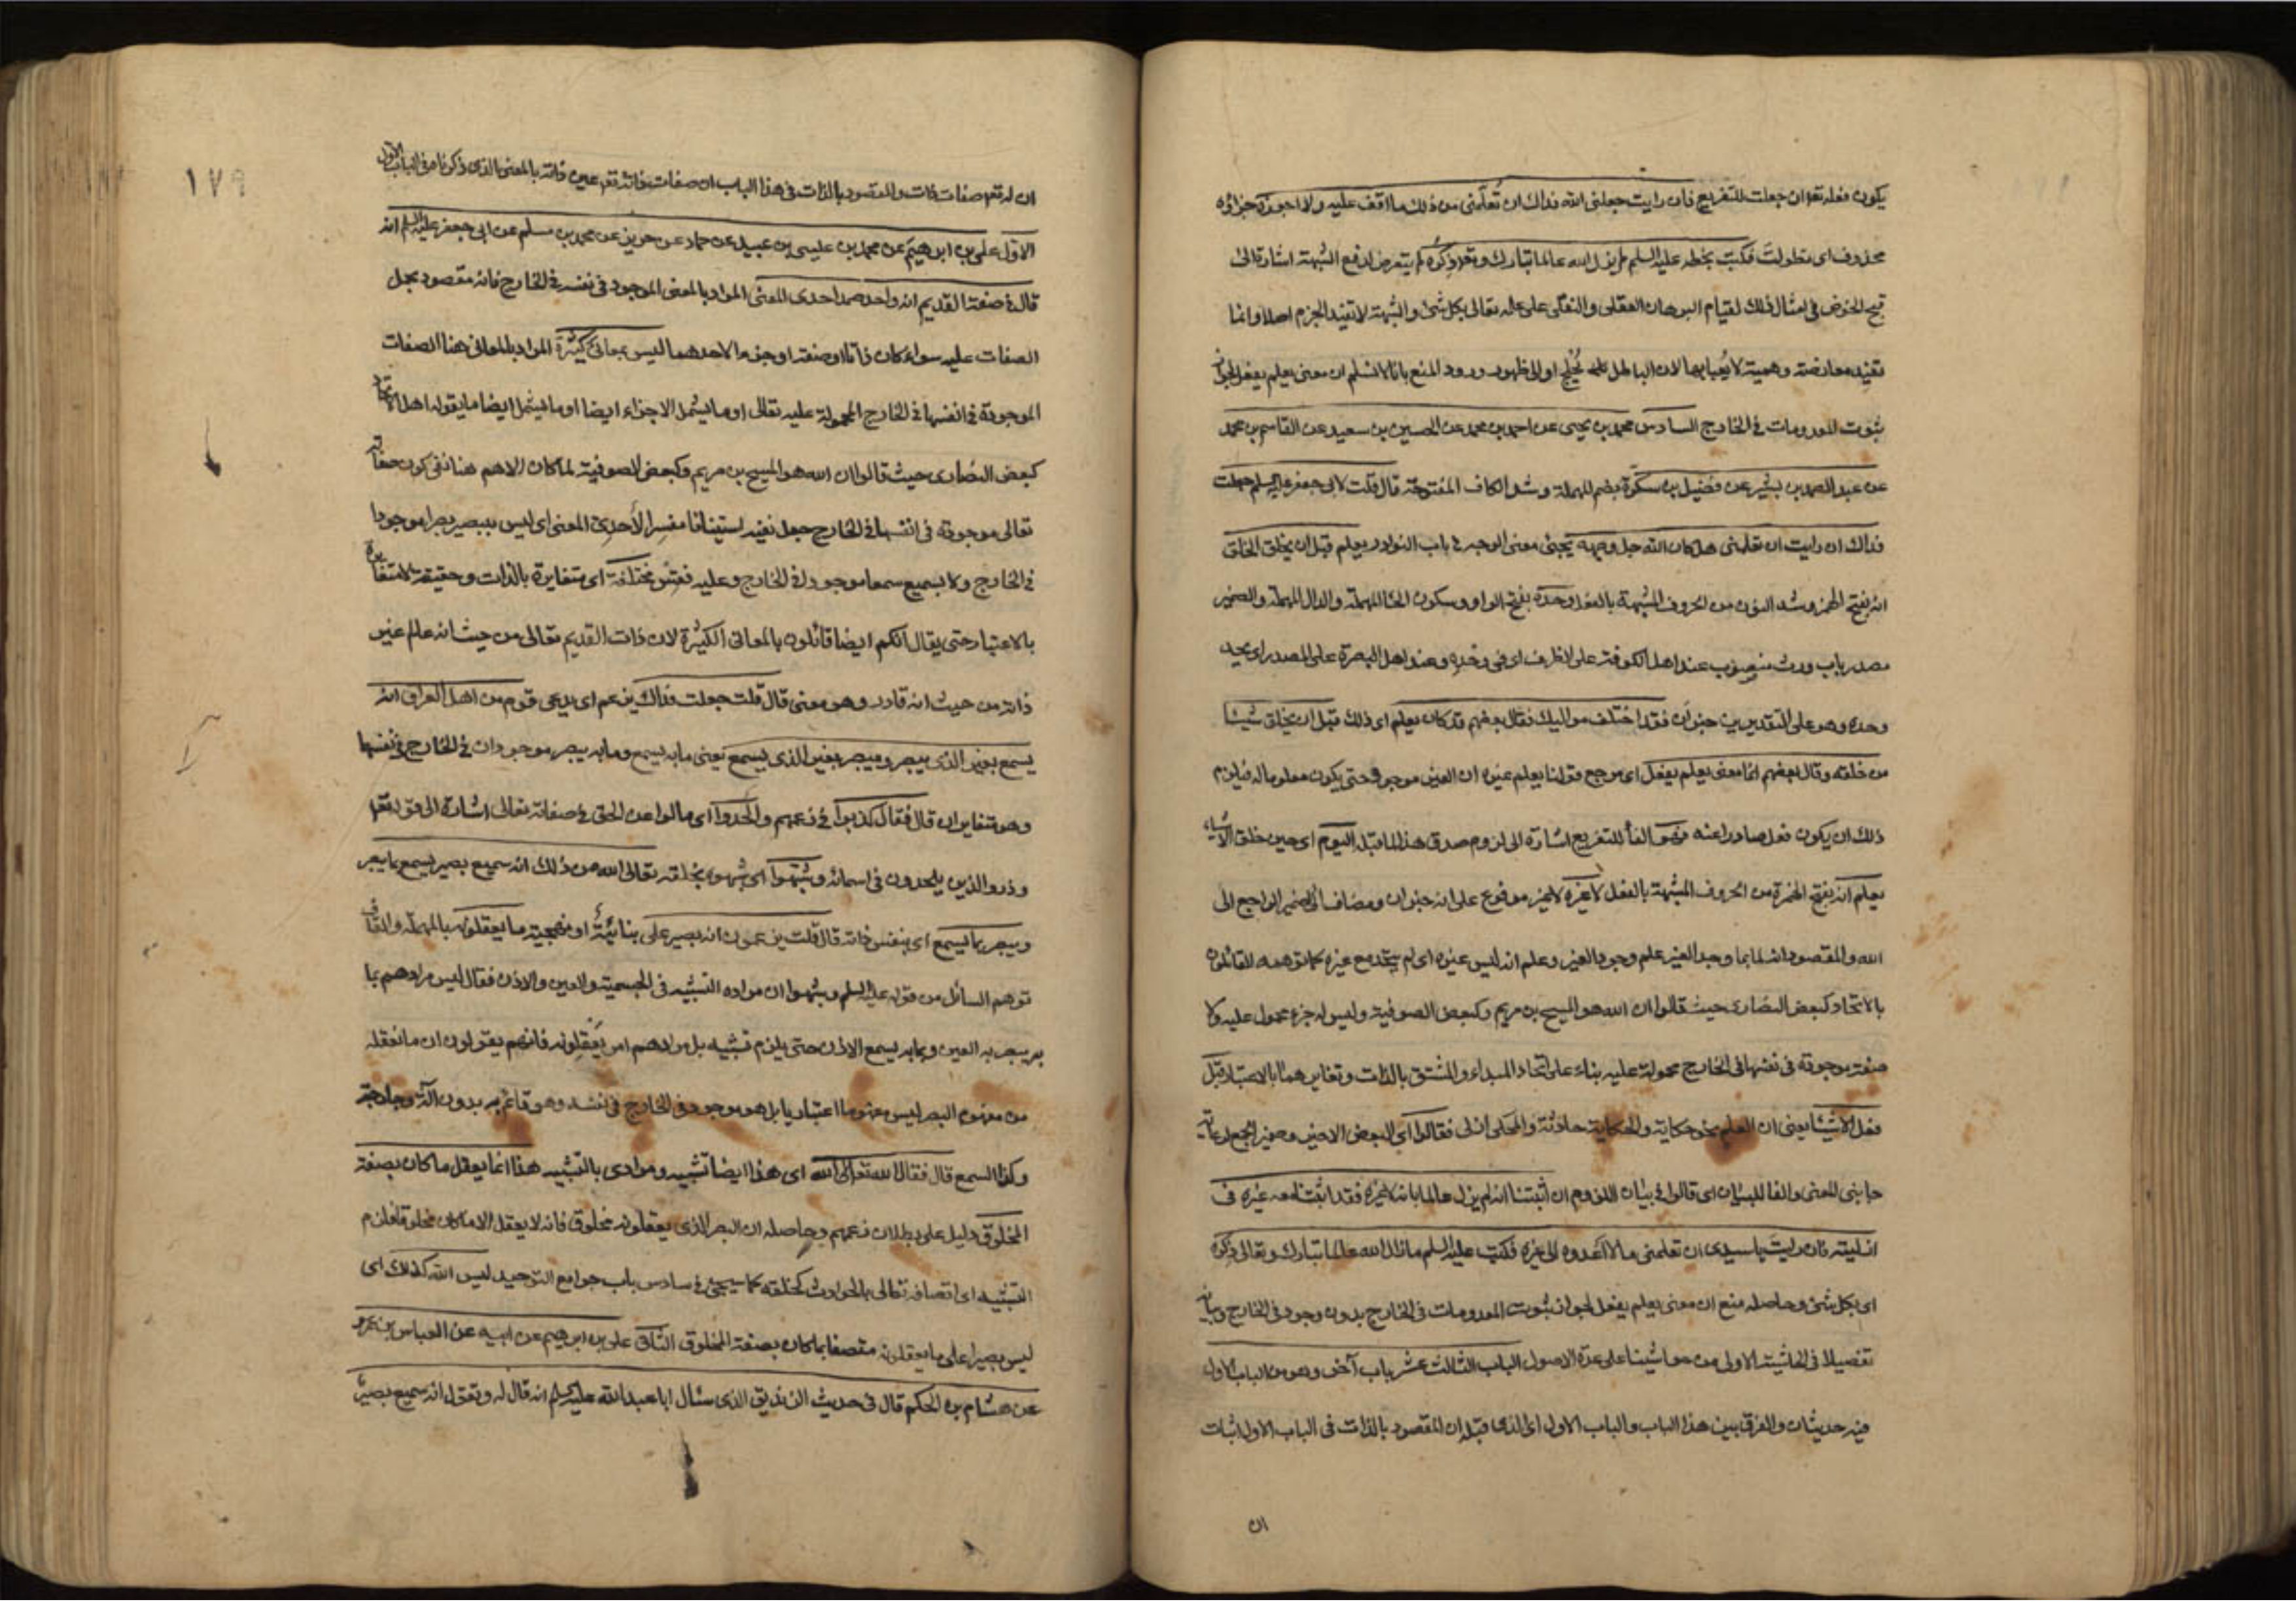 يكون فعله تعا ان جعلت للتفريع فان رايت جعلنى الله فداك ان تُعلّمنى من ذلك ما اقف عليه ولا اجوزه جزاؤه
محذوف اى تطولتَ فكتب بخطه عليه السلم لم يزل الله عالما تبارك وتعا ذِكُره لم يتعرض لدفع الشبهة اشارة الى
قبح الخوض فى امثال ذلك لقيام البرهان العقلى والنقلى على علمه تعالى بكل شئ والشبهة لا تفيد الجزم اصلا وانما
تفيد معارضة وهمية لا يُعبا بها لان الباطل او الى ظهور ورود المنع بانا لا نسلم ان معنى يعلم يفعل لجواز
ثبوت المعدومات فى الخارج السادس محمد بن يحيى عن احمد بن محمد عن الحسين بن سعيد عن القاسم بن محمد
عن عبد الصمد بن بشير عن فضيل بن سكّرة بضم المهملة وشد الكاف المفتوحة قال قلت لابى جعفر عليه السلم جعلت
فداك ان رايت ان تعلمنى هل كان الله جل وجهه يجئ معنى الوجه فى باب النوادر يعلم قبل ان يخلق الخلق
انه بفتح الهمز وشد النون من الحروف المشبهة بالفعل وحده بفتح الواو وسكون الحاء المهملة والدال المهملة والضمير
مصدر باب ورث منصوب عند اهل الكوفة على الظرف اى فى وحدِهِ وعند اهل البصرة على المصدر اى يحد
وحده وهو على التقديرين خبر ان فقد اختلف مواليك فقال بعضهم قد كان يعلم اى ذلك قبل ان يخلق شيئا
من خلقه وقال بعضهم انما معنى يعلم يفعل اى مرجع قولنا يعلم غيره ان الغير موجود حتى يكون معلوما له فيلزم
ذلك ان يكون فعل صادرا عنه فهو الفاء للتفريع اشارة الى لزوم صدق هذا لما قبله اليوم اى حين خلق الاشياء
يعلم انه بفتح الهمزة من الحروف المشبهة بالفعل لا غيره لا غير مرفوع على انه خبر ان ومضاف الى الضمير الراجع الى
الله والمقصود انه لما وجد الغير علم وجود الغير وعلم انه ليس غيره اى لم يتحد مع غيره كما توهمه القائلون
بالاتحاد كبعض النصارى حيث قالوا ان الله هو المسيح بن مريم وكبعض الصوفية وليس له جزء محمول عليه ولا
صفة موجودة فى نفسها فى الخارج محمولة عليه بناء على اتحاد المبداء والمشتق بالذات وتغايرهما بالاعتبار قبل
فعل الاشياء يعنى ان العلم حكاية والحكاية حادثة والمحكى ازلى فقالوا اى البعض الاخير وضمير الجمع لرعاية
جانب المعنى والفا للبيان اى قالوا فى بيان اللزوم ان اثبتنا انه لم يزل عالما بانه لا غيره فقد اثبتنا معه غيره فى
ازليته فان رايت ياسيدى ان تعلمنى ما لا اعدوه الى غيره فكتب عليه السلم مازال الله عالما تبارك وتعالى ذِكره
اى بكل شئ وحاصله منع ان معنى يعلم يفعل لجواز ثبوت المعدومات فى الخارج بدون وجود فى الخارج وبيانه
تفصيلا فى الحاشية الاولى من حواشينا على عدة الاصول الباب الثالث عشر باب آخر وهو من الباب الاول
فيه حديثان والفرق بين هذا الباب والباب الاول اى الذى قبله ان المقصود بالذات فى الباب الاول اثبات
ان
١٧٩
ان له تعا صفات ذات والمقصود بالذات فى هذا الباب ان صفات ذاته تعا عين ذاته بالمعنى الذى ذكرناه فى الباب الاول
الاول على بن ابرهيم عن محمد بن عيسى بن عبيد عن حماد عن حريز عن محمد بن مسلم عن ابى جعفر عليه السلم انه
قال فى صفة القديم انه واحد صمد احدى المعنى المراد بالمعنى الموجود فى نفسه فى الخارج فانه مقصود بحمل
الصفات عليه سواء كان ذاتا او صفة او جزءا لاحدهما ليس بمعانى كثيرة المراد بالمعانى هنا الصفات
الموجودة فى انفسها فى الخارج المحمولة عليه تعالى او ما يشمل الاجزاء ايضا او ما يشمل ايضا ما يقوله اهل الاتحاد
كبعض النصارى حيث قالوا ان الله هو المسيح بن مريم وكبعض الصوفية لما كان الاهم هنا نفى كون صفاته
تعالى موجودة فى انفسها فى الخارج جعل نفيه استينافا مفسرا لأحدى المعنى اى ليس ببصير بصرا موجودا
فى الخارج ولا بسميع سمعا موجودا فى الخارج وعليه فقس مختلفة اى متغايرة بالذات وحقيقة لا متغايرة
بالاعتبار حتى يقال انكم ايضا قائلون بالمعانى الكثيرة لان ذات القديم تعالى من حيث انه عالم غير
ذاته من حيث انه قادر وهو معنى قال قلت جعلت فداك يزعم اى يدعى قوم من اهل العراق انه
يسمع بغير الذى يبصر ويبصر بغير الذى يسمع يعنى ما به يسمع وما به يبصر موجودان فى الخارج فى نفسها
وهو متغايران قال فقال كذبوا فى زعمهم والحدوا اى مالوا عن الحق فى صفاته تعالى اشارة الى قوله تعا
وذروا الذين يلحدون فى اسمائه وشبّهوا اى شبهوه بخلقه تعالى الله عن ذلك انه سميع بصير يسمع بما يبصر
ويبصر بما يسمع اى بنفس ذاته قال قلت يزعمون انه بصير على بنائية او منهجية ما يعقلونه بالمهملة والقاف
توهم السائل من قوله عليه السلم وشبهوا ان مراده التشبيه فى الجسمية والعين والاذن فقال ليس مرادهم بما
به يبصر به العين وبما به يسمع الاذن حتى يلزم تشبيه بل مرادهم امر يَعْقِلونه فانهم يقولون ان ما نعقله
من مفهوم البصر ليس مفهوما اعتباريا بل هو موجود فى الخارج فى نفسه وهو قائم به بدون آلة وجارحة
وكذا السمع قال فقال تعالى الله اى هذا ايضا تشبيه ومرادى بالتشبيه هذا انما يعقل ما كان بصفة
المخلوق دليل على بطلان زعمهم وحاصله ان البصر الذى يعقلونه مخلوق فانه لا يعقل الا ما كان مخلوقا فلزم
التشبيه اى اتصافه تعالى بالحوادث كخلقه كما سيجئ فى سادس باب جوامع التوحيد ليس الله كذلك اى
ليس بصيرا على ما يعقلونه متصفا بما كان بصفة المخلوق الثانى على بن ابرهيم عن ابيه عن العباس بن عمرو
عن هشام بن الحكم قال فى حديث الزنديق الذى سئال ابا عبد الله عليه السلم انه قال له وتقول انه سميع بصير